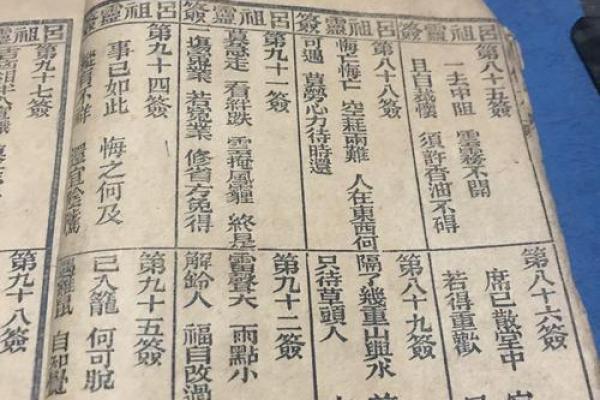 呂祖靈簽
第八十五簽
一去中阻 雲霧不開
且自栽懷 須許香油不碍
呂祖靈簽
第八十八簽
悔亡悔亡 空耗兩難 人在東西何
可遇 莫勞心力待時還
第九十一簽
莫急走 看絆跌 雲掩風霾 終是
一塲惡業 若寃業 修省方免得
呂祖靈簽
第九十四簽
事已如此 悔之何及
第九十七簽
第八十六簽
席已散堂中
若得重歡
第八十九簽
隔了幾重山與水
只待草頭人
第九十二簽
雷聲大 雨點小
解鈴人 福自改過
第九十五簽
已入籠 何可脫
自卸覺
第九十八簽